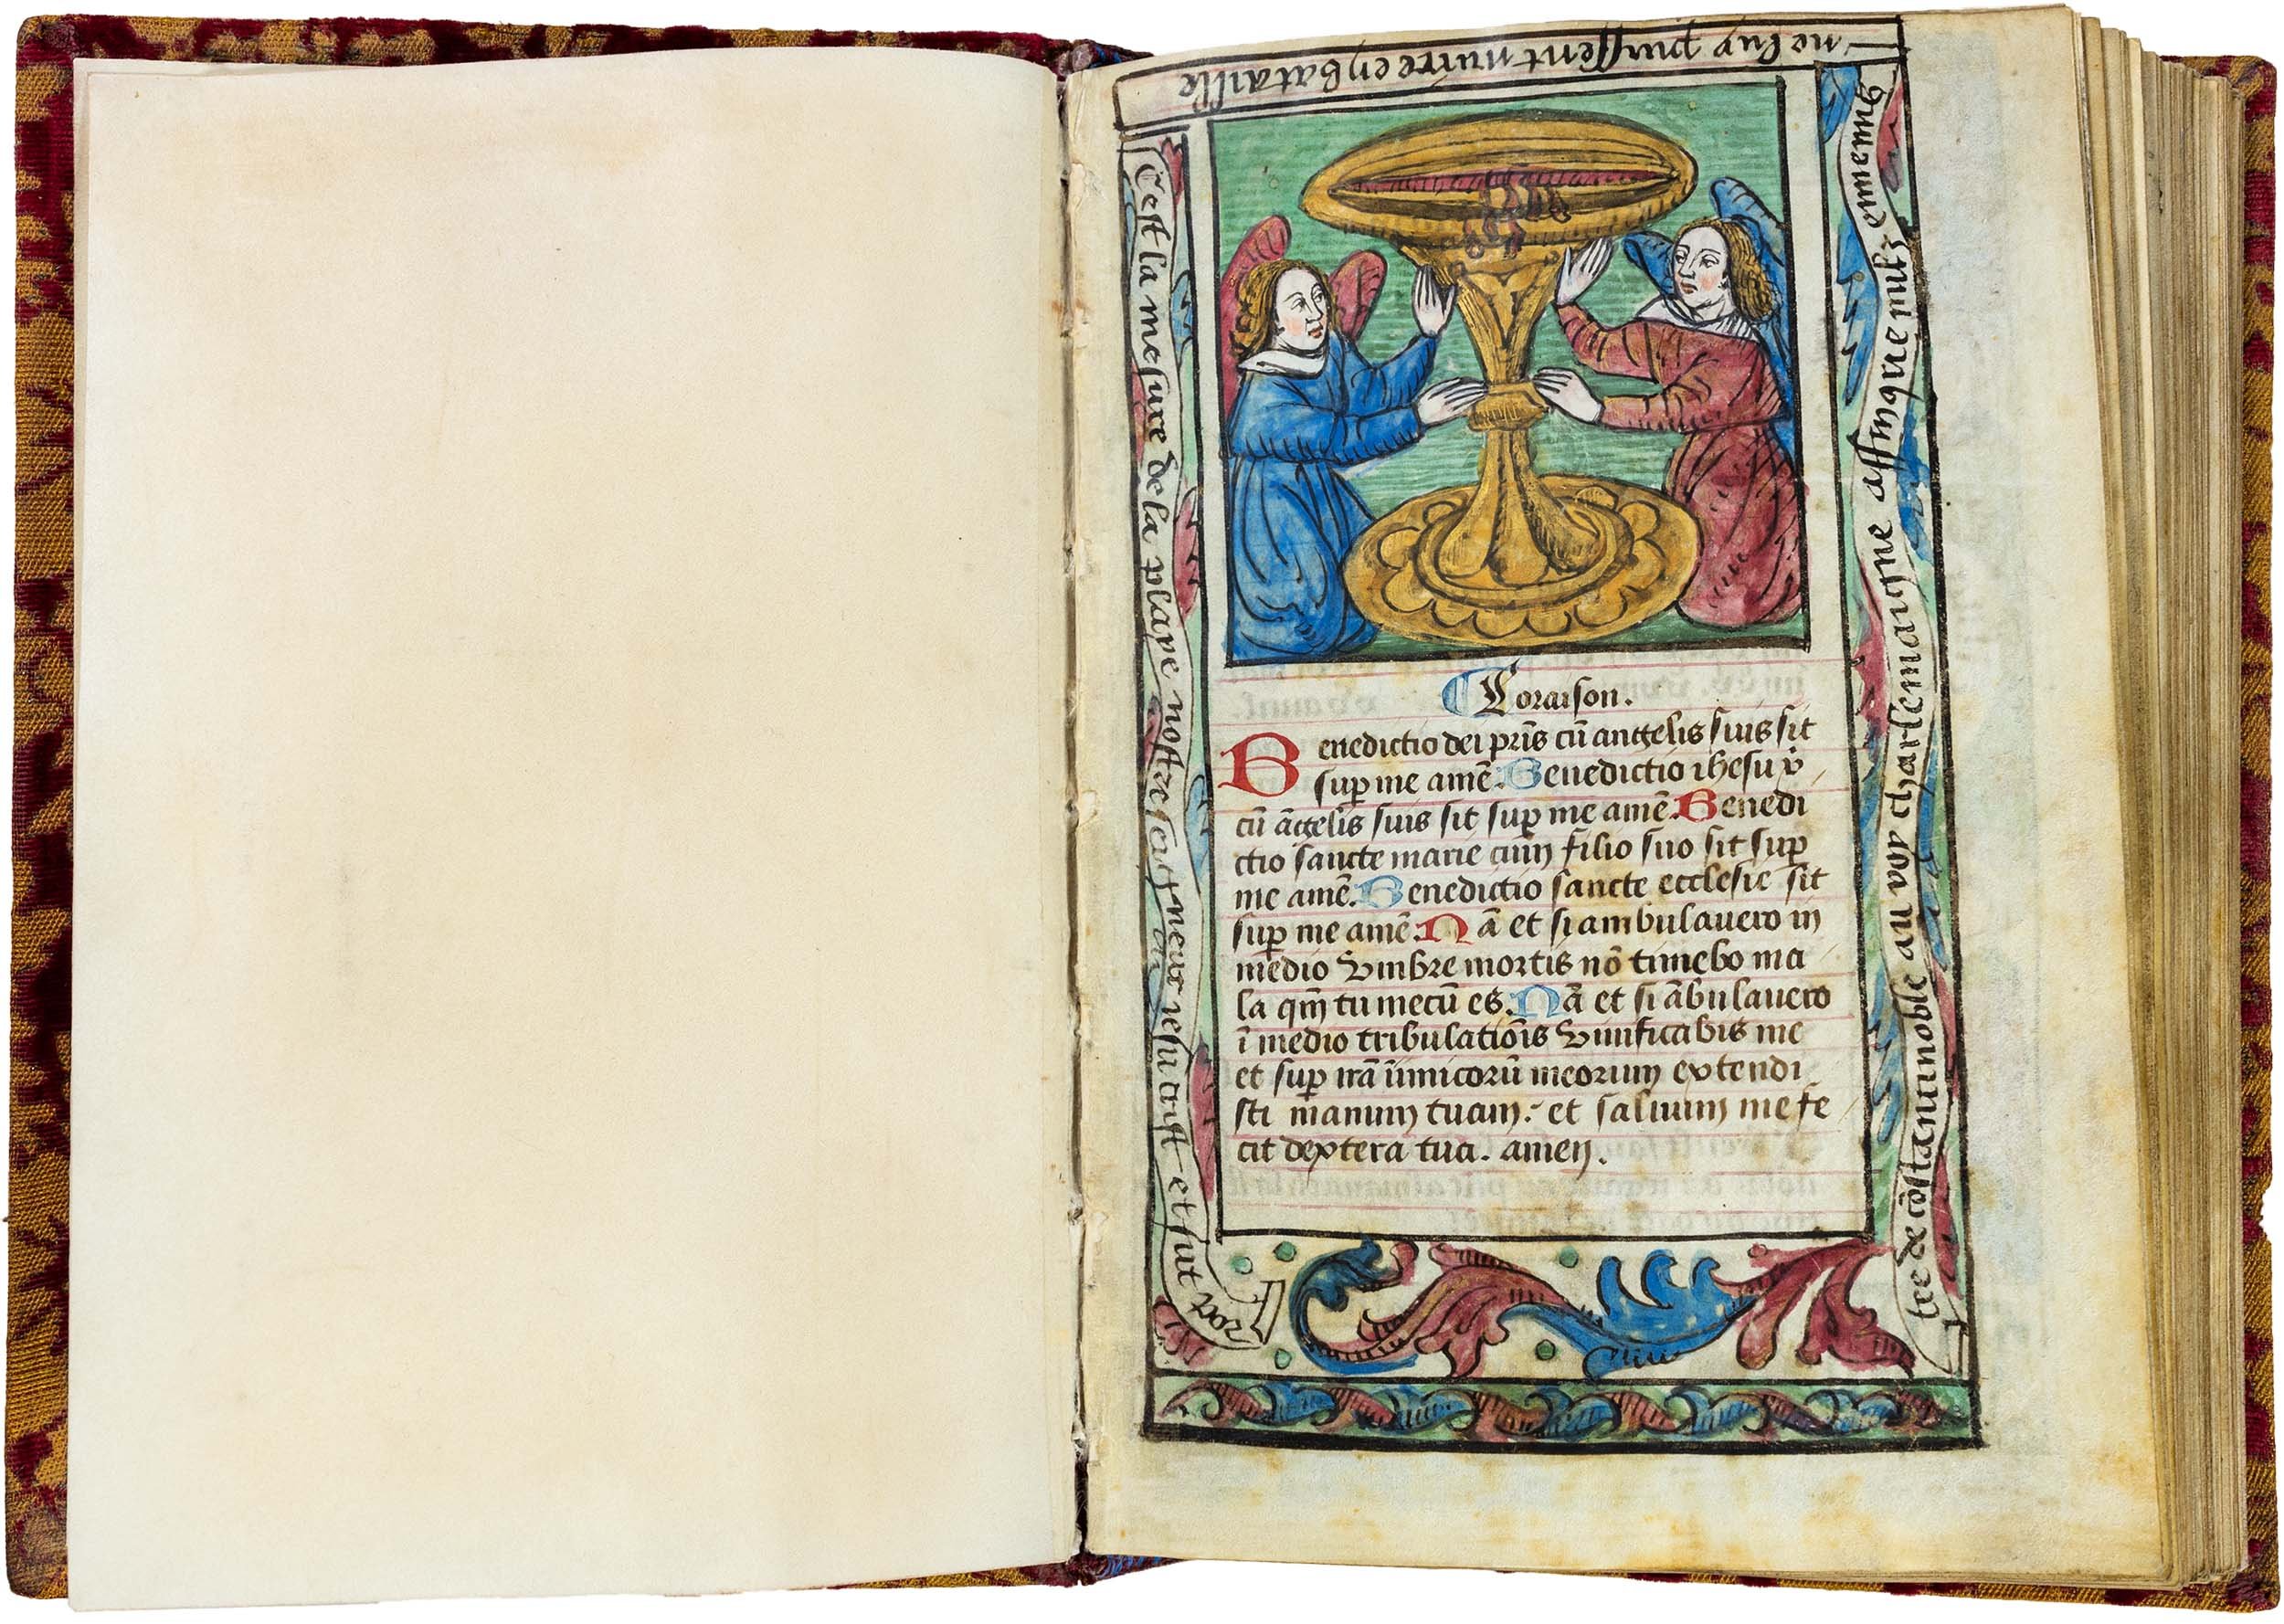 Cest la mesure de la playe nostre seigneur iesu crist et fut aport
tee de cōstantinoble au roy charlemaigne affin que nulz ennemis
ne luy puissent nuire en bataille
Loraison.
Benedictio dei pr̄is cū angelis suis sit
sup me amē. Benedictio ihesu x̄
cū āgelis suis sit sup me amē. Benedi
ctio sancte marie cum filio suo sit sup
me amē. Benedictio sancte ecclesie sit
sup me amē. Nā et si ambulavero in
medio vmbre mortis nō timebo ma
la qm̄ tu mecū es. Nā et si ābulavero
ī medio tribulatiōis viuificabis me
et sup irā īimicorū meorum extendi
sti manum tuam. et saluum me fe
cit dextera tua. amen.